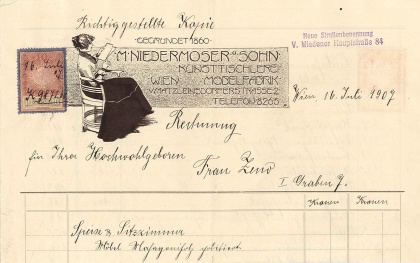 Richtiggestellte Kopie
GEGRÜNDET 1860
M. NIEDERMOSER u. SOHN
KUNSTTISCHLEREI
WIEN MÖBELFABRIK
V. MATZLEINSDORFERSTRASSE 2
TELEFON 8265
Neue Straßenbenennung
V. Wiedener Hauptstraße 84
16. Juli
Wien, 16. Juli 1907
Rechnung
für Ihrer Hochwohlgeboren
Frau Zeno
I. Graben 7.
Kronen Kronen
Speise & Sitzzimmer
Möbel Mahagoniholz politiert.